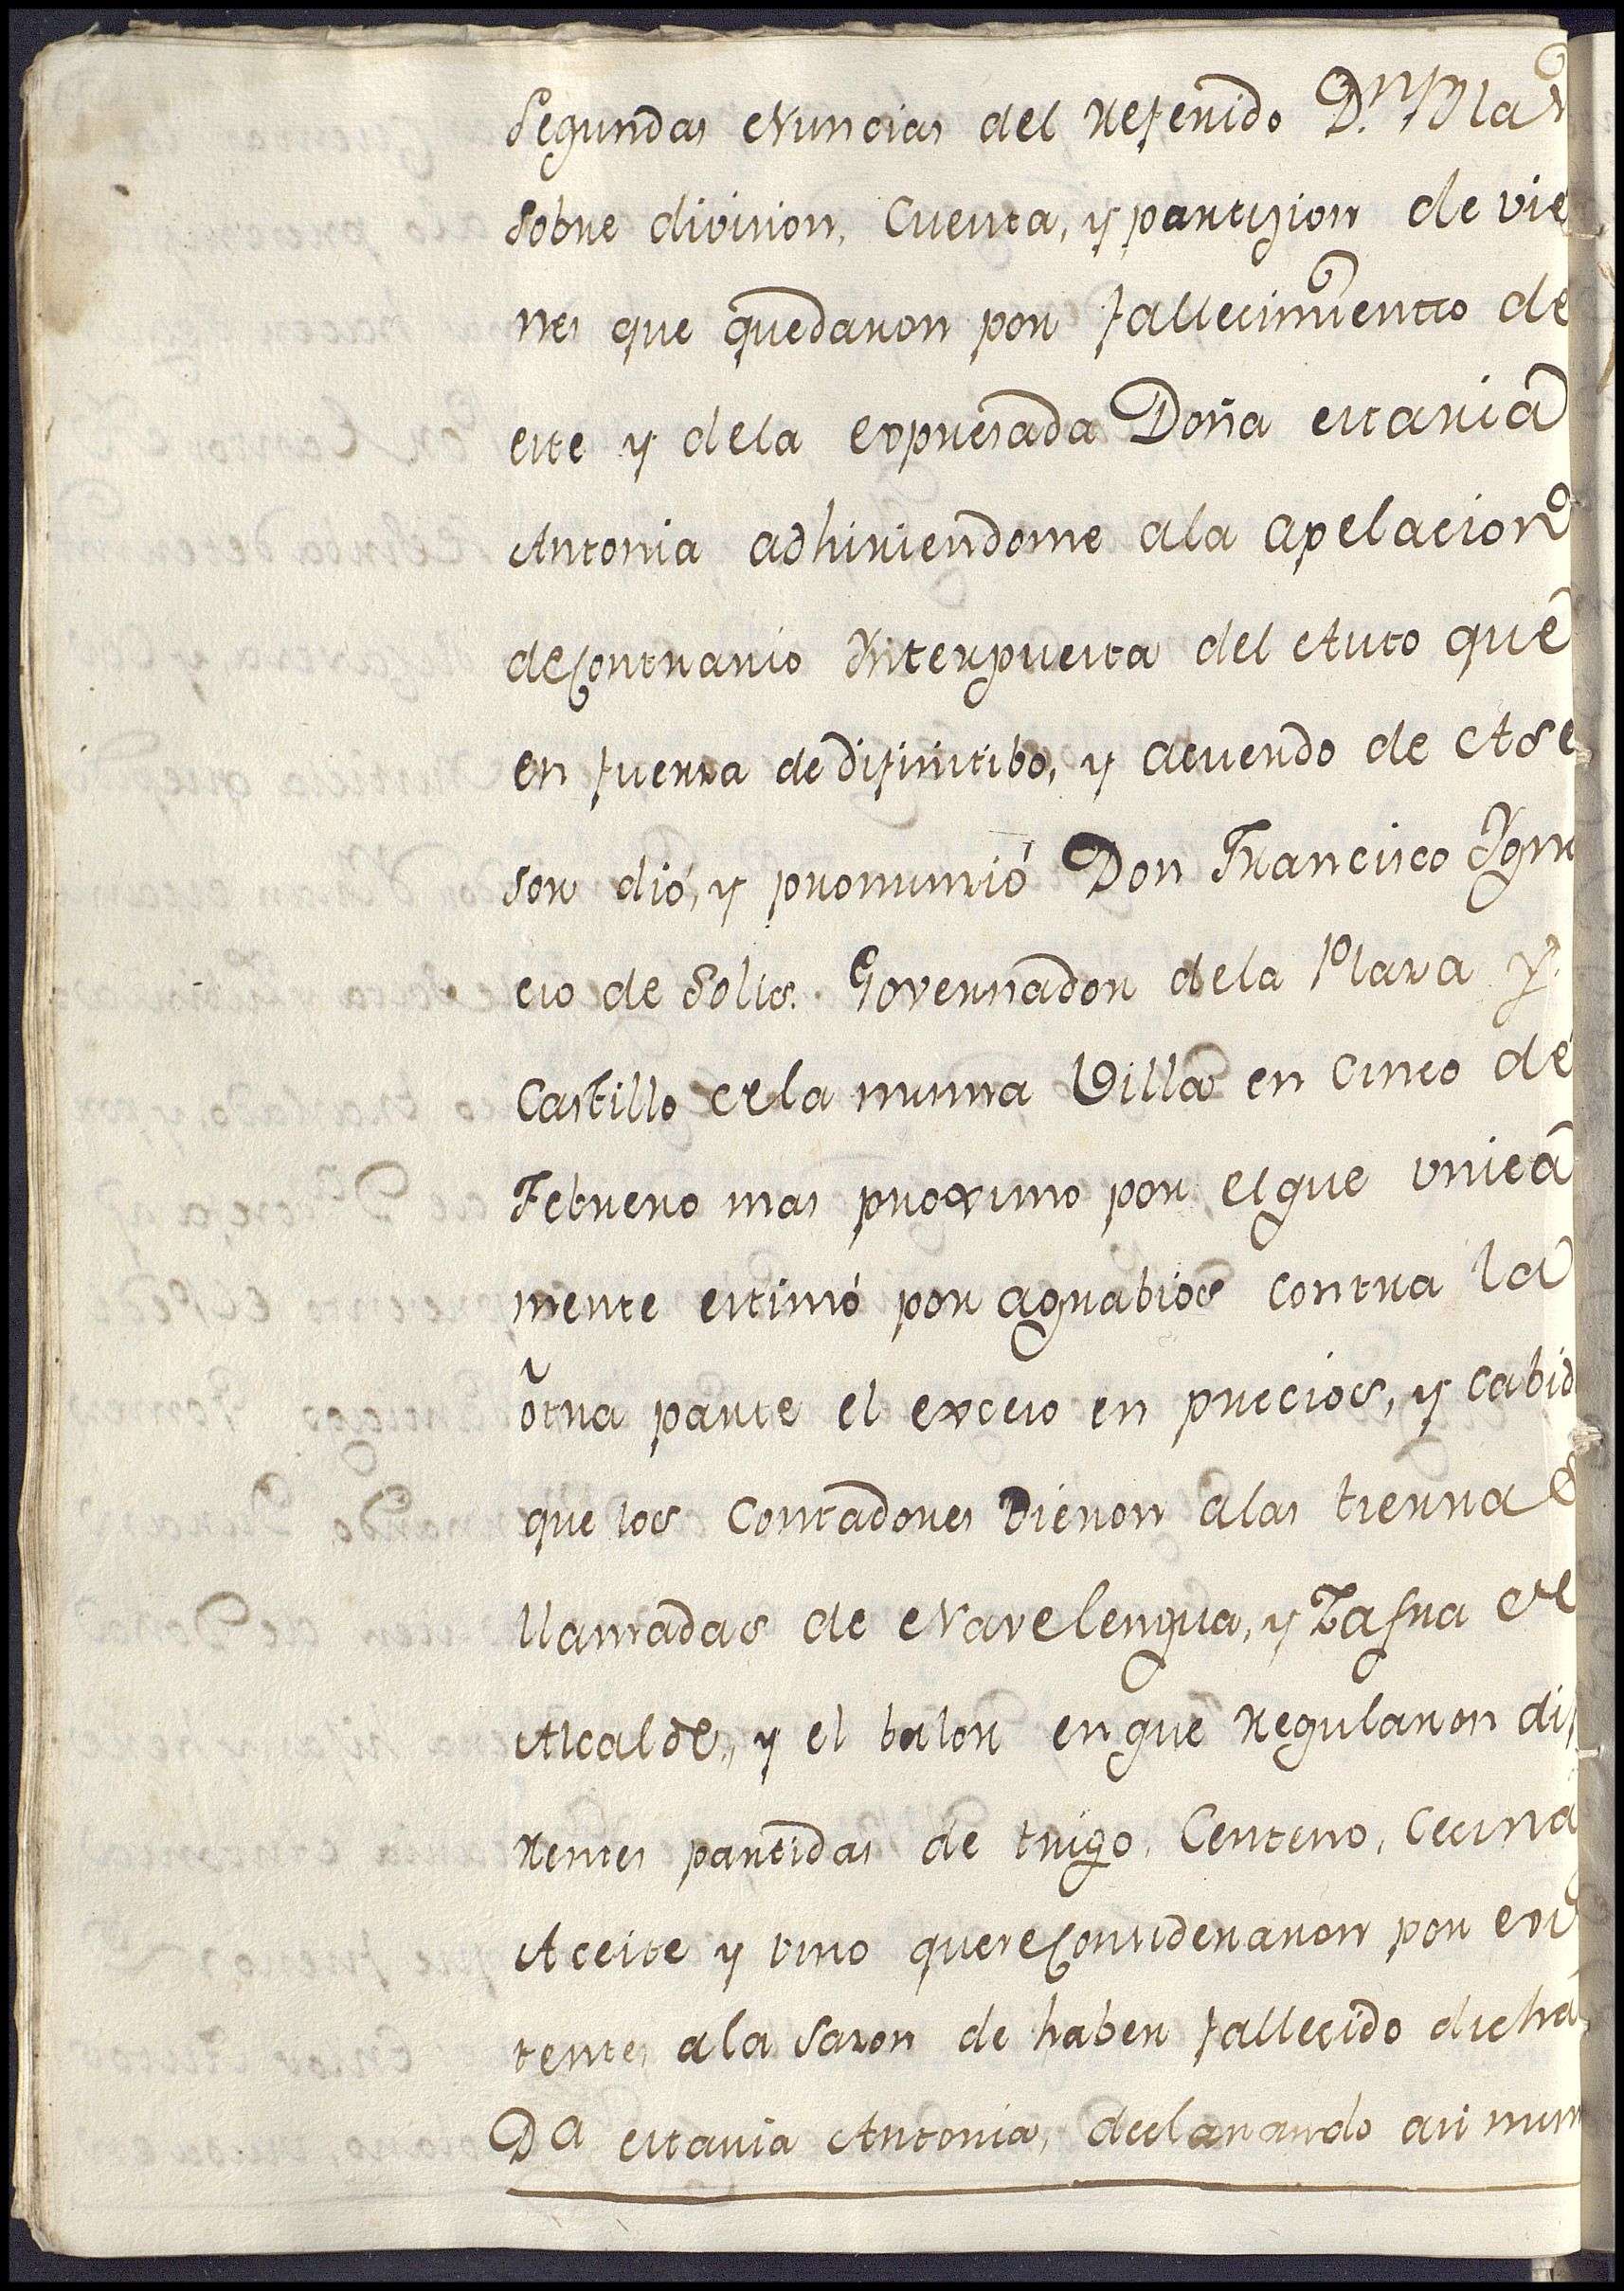 Segundas Nuncias del referido D.n Blas
sobre division, Cuenta, y partizion de vie
nes que quedaron por fallecimiento de
este y dela expresada Doña Maria
Antonia adhiriendome ala apelacion
de Contrario Ynterpuesta del Auto que
en fuerza de difinitibo, y acuerdo de Ase
sor dió, y pronunció Don Francisco Ygna
cio de Solis. Governador dela Plaza y
Castillo dela misma Villa en cinco de
Febrero mas proximo por el que unica
mente estimó por agrabios contra la
otra parte el exceso en precios, y cabid
que los Contadores Dieron alas tierras
llamadas de Navelengua, y Zafra de
Alcalde, y el balor en que regularon dif
rentes partidas de trigo, Centeno, Cecina
Aceite y vino que se Consideraron por exis
tentes ala sazon de haber fallecido dicha
Da Maria Antonia, declarando asi mism